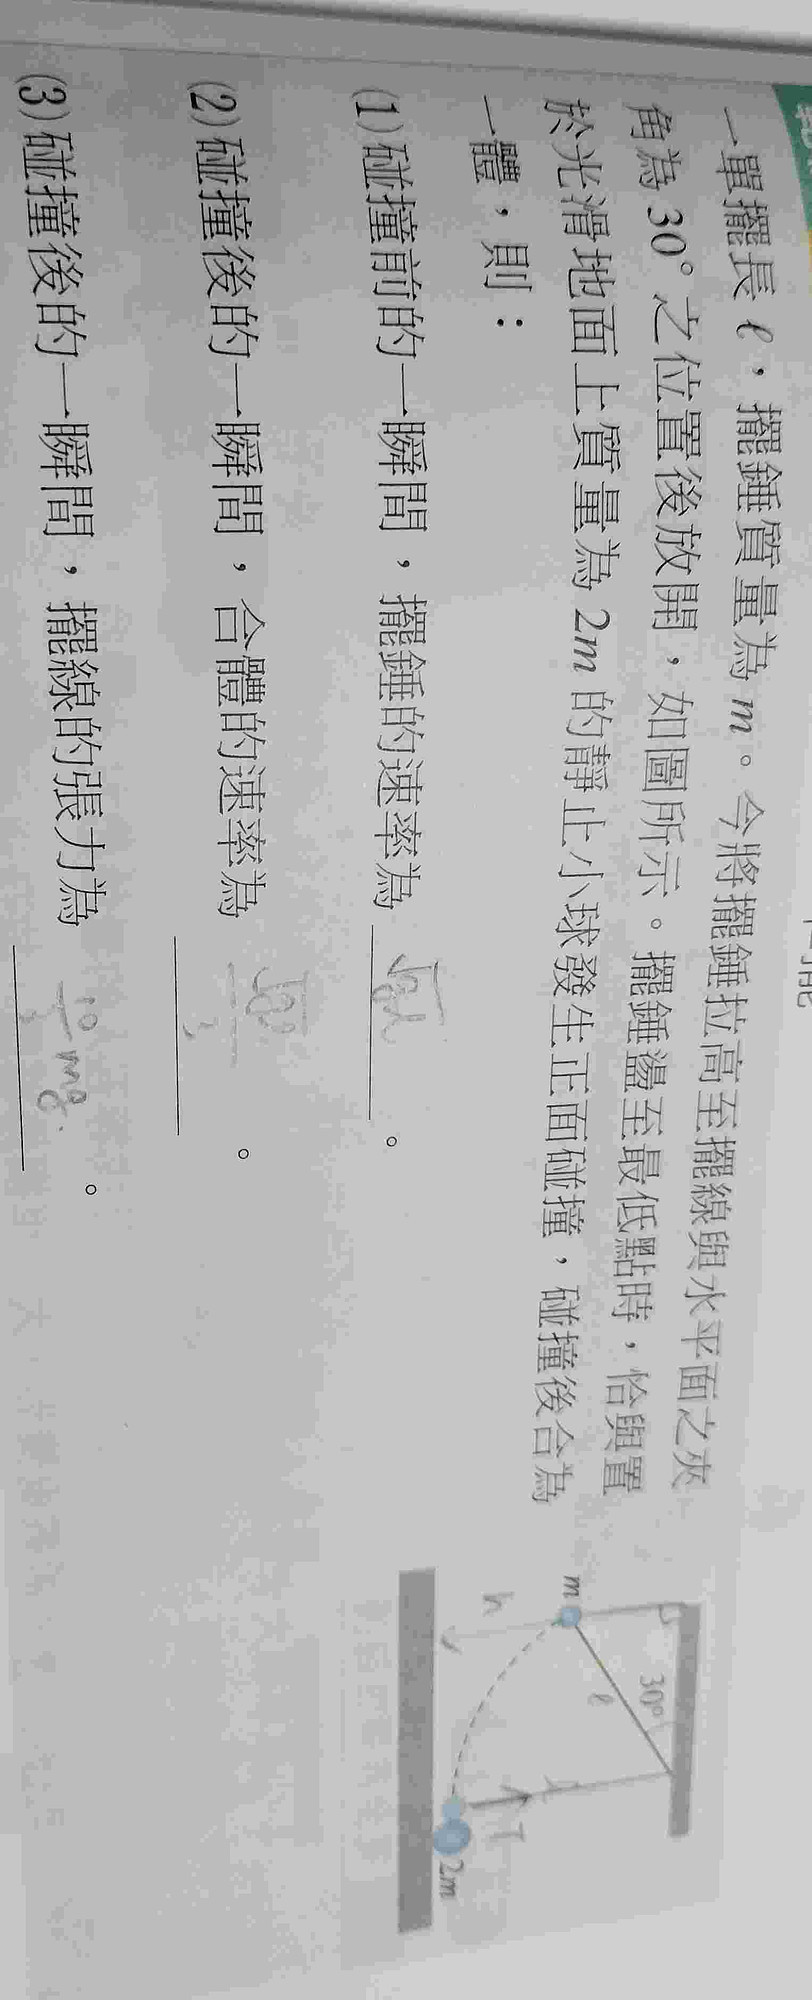 一單擺長 ℓ,擺錘質量為 m。今將擺錘拉高至擺線與水平面之夾
角為 30° 之位置後放開,如圖所示。擺錘盪至最低點時,恰與置
於光滑地面上質量為 2m 的靜止小球發生正面碰撞,碰撞後合為
一體,則:
(1)碰撞前的一瞬間,擺錘的速率為 √gℓ 。
(2)碰撞後的一瞬間,合體的速率為 。
(3)碰撞後的一瞬間,擺線的張力為 10/3 mg. 。
30°
ℓ
m
h
T
2m